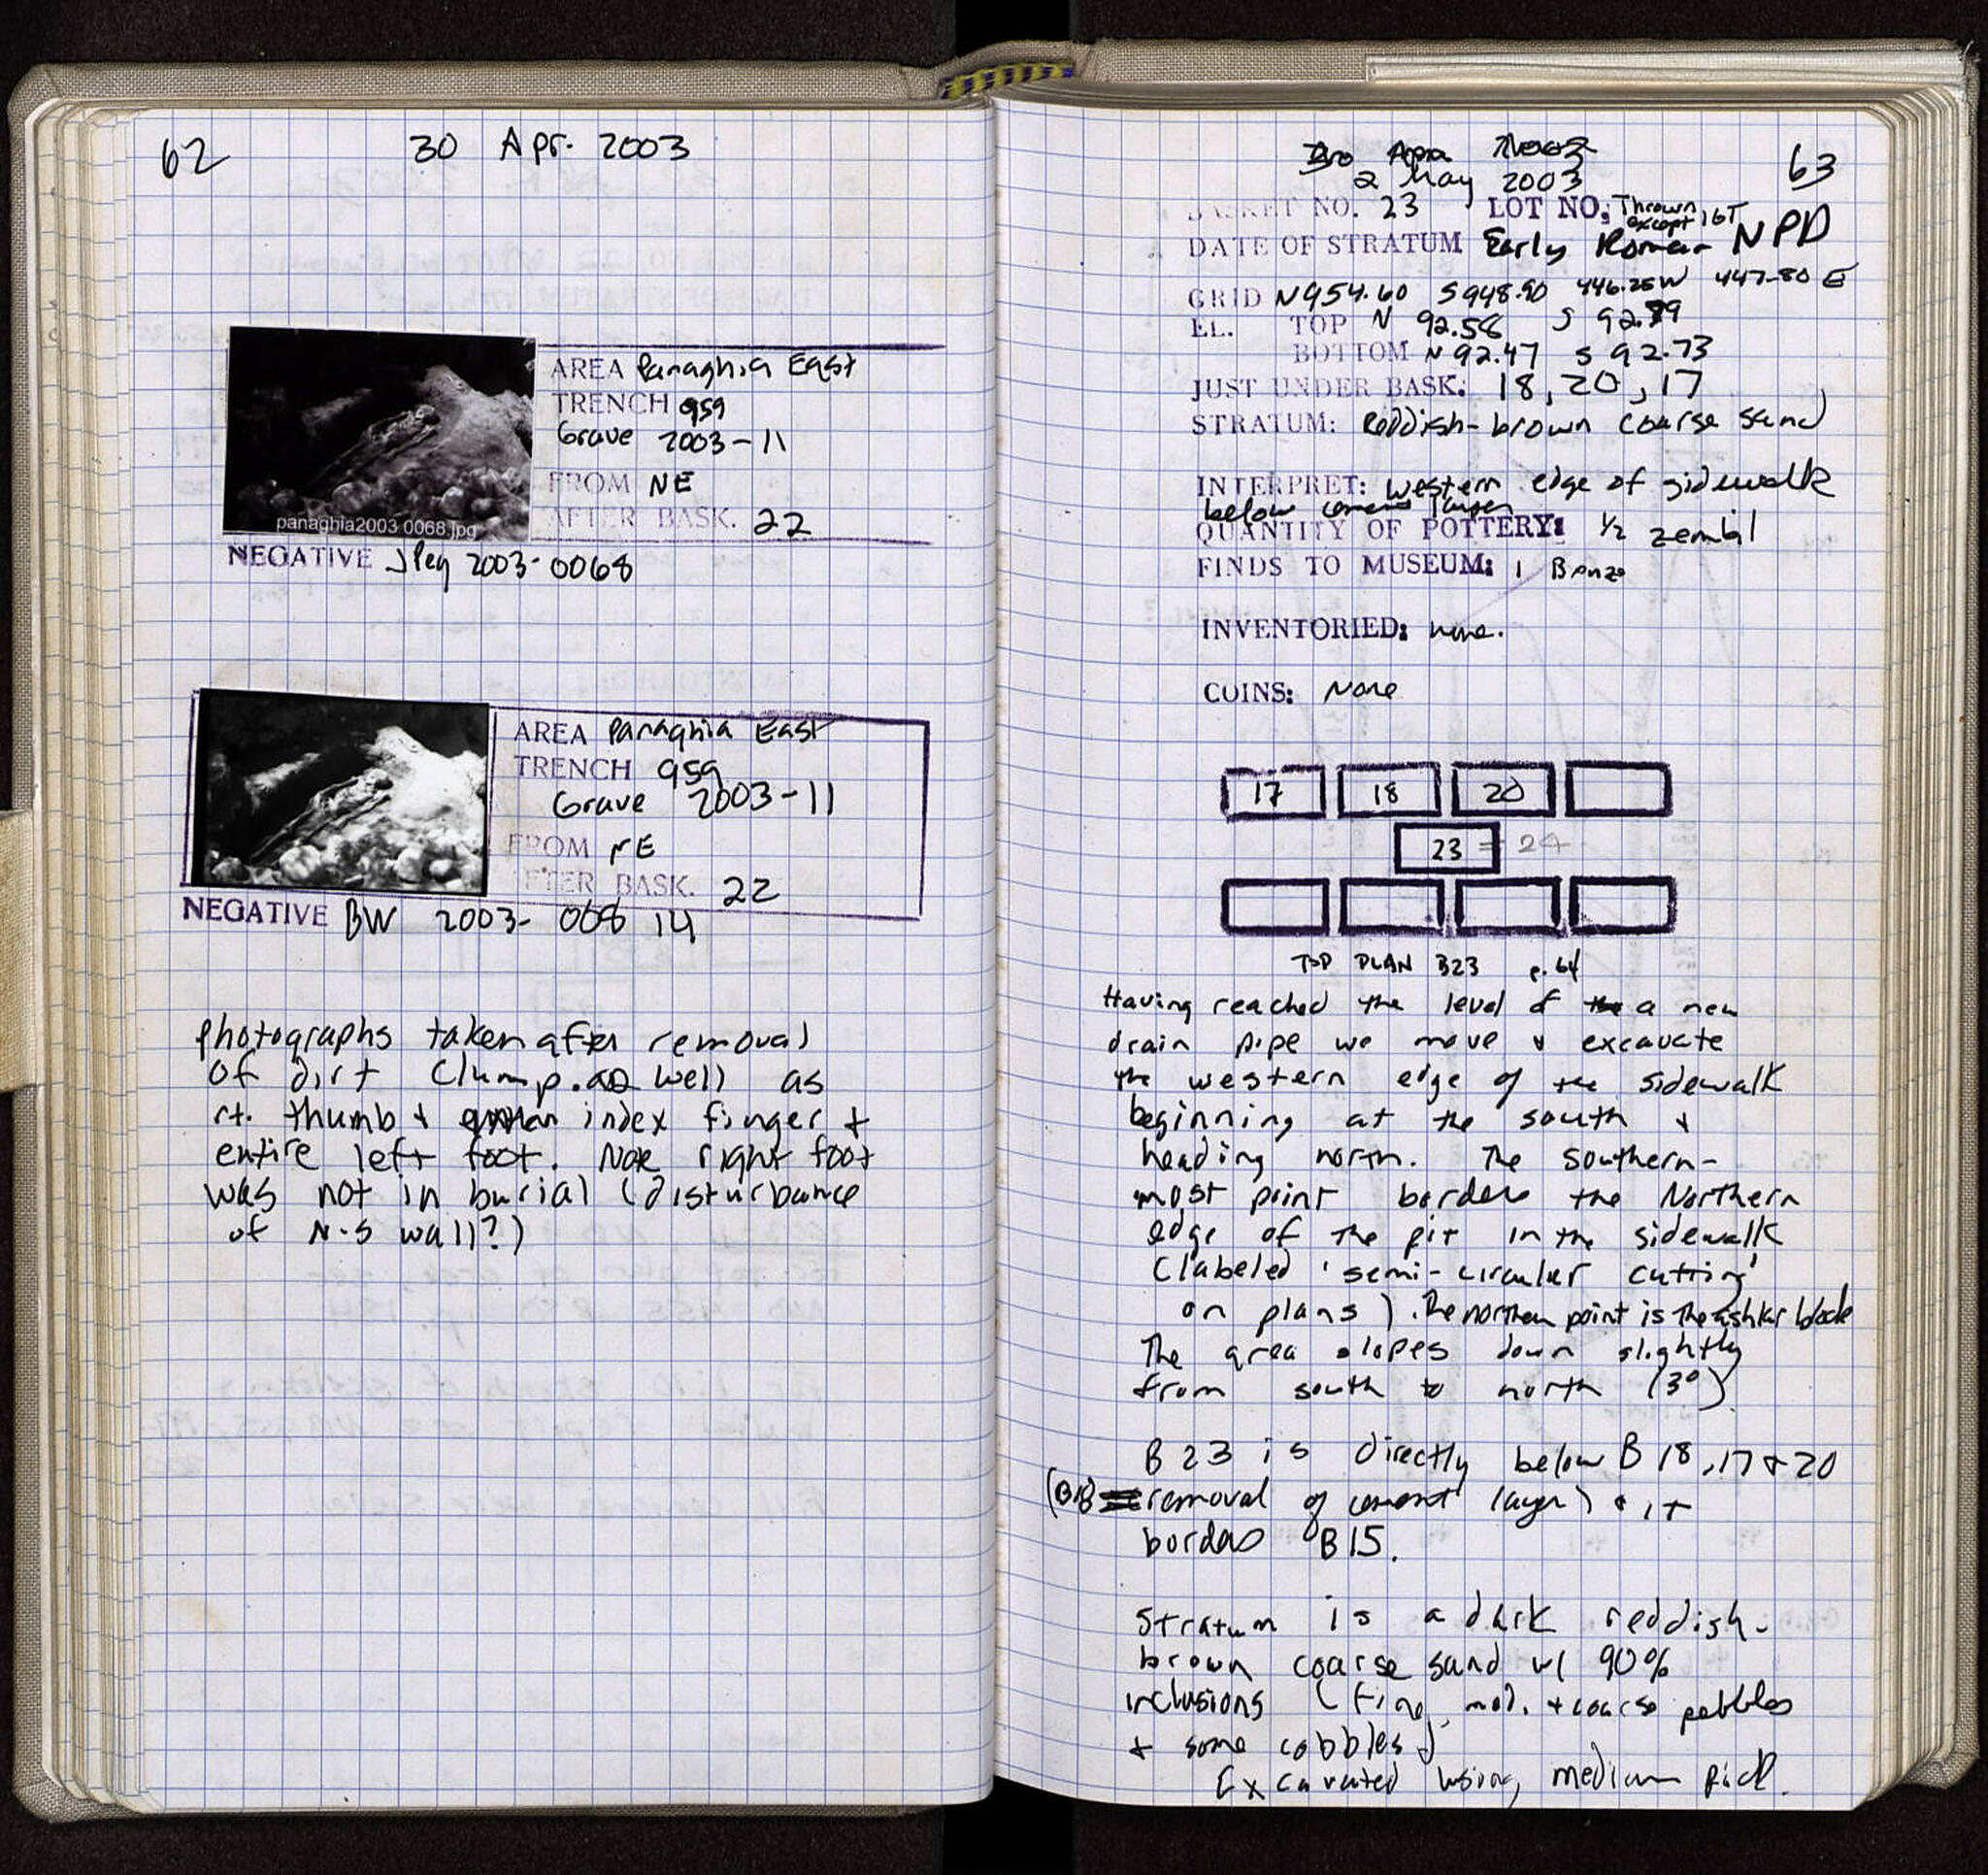 62
30 Apr. 2003
AREA Panaghia East
TRENCH 959
Grave 2003-11
FROM NE
AFTER BASK. 22
panaghia2003 0068.jpg
NEGATIVE JPeg 2003-0068
AREA Panaghia East
TRENCH 959
Grave 2003-11
FROM NE
AFTER BASK. 22
NEGATIVE BW 2003- 068 14
Photographs taken after removal
of dirt clump. as well as
rt. thumb + index finger +
entire left foot. Note right foot
was not in burial (disturbance
of N-S wall?)
2 May 2003
63
BASKET NO. 23 LOT NO. Thrown
except 1 GT
DATE OF STRATUM Early Roman NPD
GRID N954.60 S948.90 446.25W 447.80 E
EL. TOP N 92.58 S 92.89
BOTTOM N 92.47 S 92.73
JUST UNDER BASK: 18, 20, 17
STRATUM: Reddish-brown coarse sand
INTERPRET: Western edge of sidewalk
below cement layer
QUANTITY OF POTTERY: 1/2 zembil
FINDS TO MUSEUM: 1 Bronze
INVENTORIED: none.
COINS: None
17 18 20
23 = 24
TOP PLAN B23 p. 64
Having reached the level of a new
drain pipe we move & excavate
the western edge of the sidewalk
beginning at the south &
heading north. The southern-
most point borders the Northern
edge of the pit in the sidewalk
(labeled 'semi-circular cutting'
on plans). The northern point is the ashlar block
The area slopes down slightly
from south to north (3°)
B 23 is directly below B 18, 17 & 20
(B18 removal of cement layer) & it
borders B15.
Stratum is a dark reddish-
brown coarse sand w/ 90%
inclusions (fine, med. + coarse pebbles
+ some cobbles)
Excavated using medium pick.